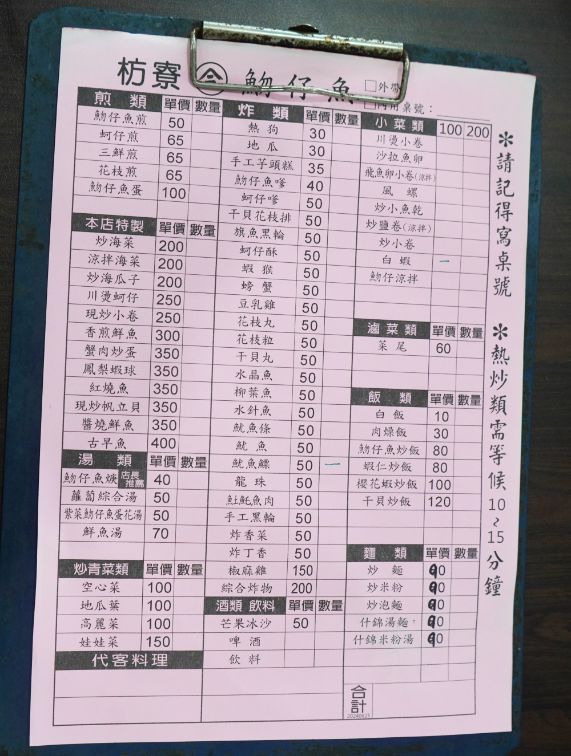 枋寮 仚 魩仔魚 □外帶
□內用桌號：
煎類 單價 數量
魩仔魚煎 50
蚵仔煎 65
三鮮煎 65
花枝煎 65
魩仔魚蛋 100
本店特製 單價 數量
炒海菜 200
涼拌海菜 200
炒海瓜子 200
川燙蚵仔 250
現炒小卷 250
香煎鮮魚 300
蟹肉炒蛋 350
鳳梨蝦球 350
紅燒魚 350
現炒帆立貝 350
醬燒鮮魚 350
古早魚 400
湯類 單價 數量
魩仔魚焿 店長推薦 40
蘿蔔綜合湯 50
紫菜魩仔魚蛋花湯 50
鮮魚湯 70
炒青菜類 單價 數量
空心菜 100
地瓜葉 100
高麗菜 100
娃娃菜 150
代客料理
炸類 單價 數量
熱狗 30
地瓜 30
手工芋頭糕 35
魩仔魚嗲 40
蚵仔嗲 50
干貝花枝排 50
旗魚黑輪 50
蚵仔酥 50
蝦猴 50
螃蟹 50
豆乳雞 50
花枝丸 50
花枝粒 50
干貝丸 50
水晶魚 50
柳葉魚 50
水針魚 50
魷魚條 50
魷魚 50
魷魚鰾 50 一
龍珠 50
魟魠魚肉 50
手工黑輪 50
炸香菜 50
炸丁香 50
椒麻雞 150
綜合炸物 200
酒類 飲料 單價 數量
芒果冰沙 50
啤酒
飲料
小菜類 100 200
川燙小卷
沙拉魚卵
飛魚卵小卷(涼拌)
風螺
炒小魚乾
炒鹽卷(涼拌)
炒小卷
白蝦 一
魩仔涼拌
滷菜類 單價 數量
菜尾 60
飯類 單價 數量
白飯 10
肉燥飯 30
魩仔魚炒飯 80
蝦仁炒飯 80
櫻花蝦炒飯 100
干貝炒飯 120
麵類 單價 數量
炒麵 90
炒米粉 90
炒泡麵 90
什錦湯麵 90
什錦米粉湯 90
合計
＊請記得寫桌號 ＊熱炒類需等候10~15分鐘